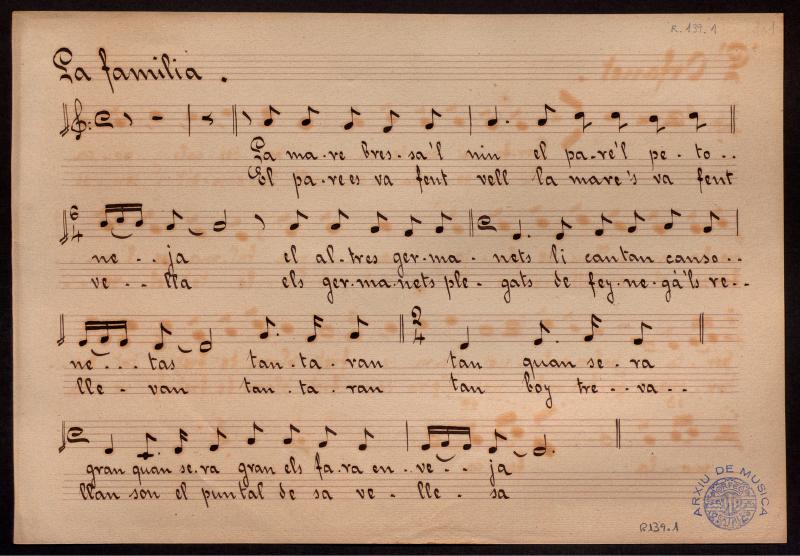 R. 139.1
La familia.
La ma-re bres-sa'l nin el pa-re'l pe-to--
El pa-re es va fent vell la mare's va fent
6
4
ne--ja el al-tres ger-ma-nets li cantan canso--
ve--lla els ger-ma-nets ple-gats de fey-ne-gà'ls re--
2
4
ne...tas tan-ta-ran tan quan se-ra
lle-van tan-ta-ran tan boy tre-va--
gran quan se-ra gran els fa-ra en-ve--ja
llan son el puntal de sa ve-lle-sa
ARXIU DE MUSICA
R139.1